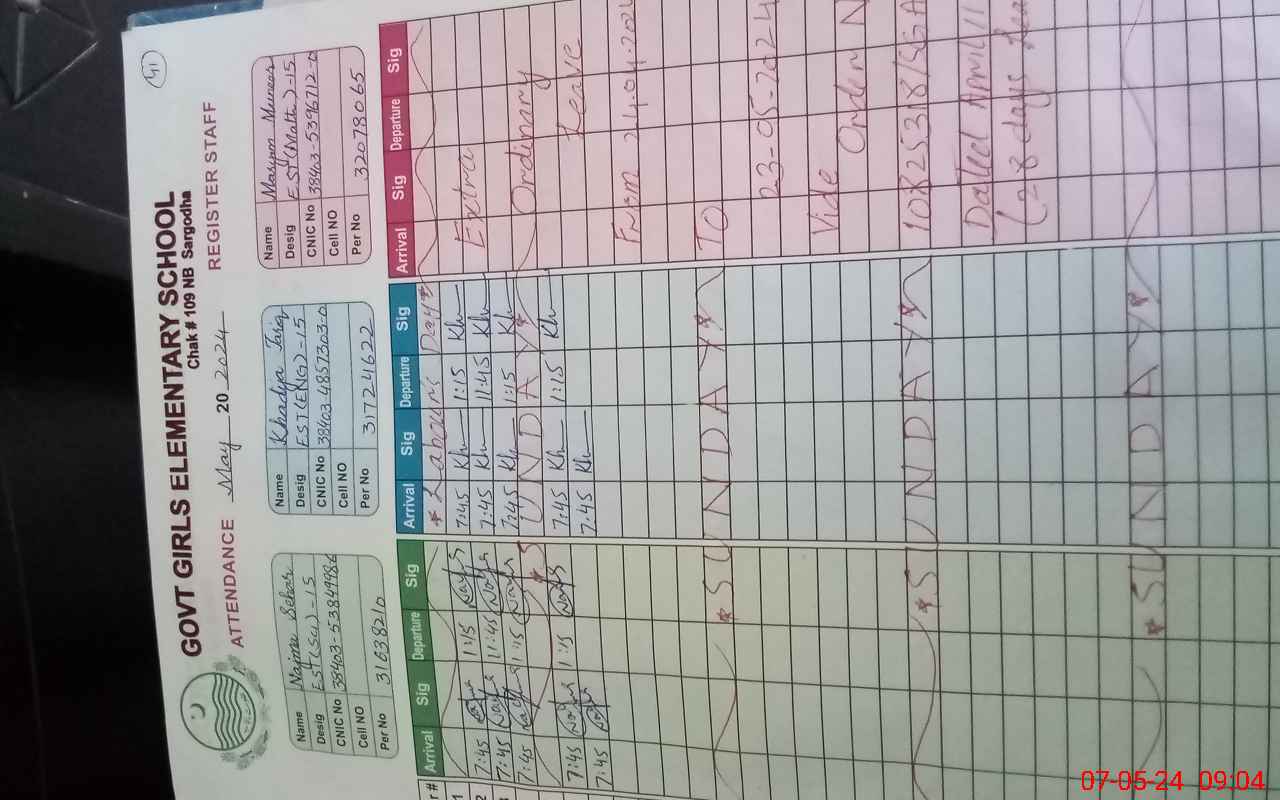 41
GOVT GIRLS ELEMENTARY SCHOOL
Chak # 109 NB Sargodha
ATTENDANCE May 20 2024 REGISTER STAFF
Name Najma Sehar
Desig EST(Sci)-15
CNIC No 38403-53849986
Cell NO
Per No 31638210
Name Khadija Tariq
Desig EST(ENG)-15
CNIC No 38403-4857303-0
Cell NO
Per No 31724622
Name
Desig EST(Math)-15
CNIC No 38403-5396712-0
Cell NO
Per No 32078065
r # Arrival Sig Departure Sig Arrival Sig Departure Sig Arrival Sig Departure Sig
1 * Labour Day *
2 7:45 1:15 7:45 Kh 1:15 Kh Extra
7:45 11:45 7:45 Kh 11:45 Kh
7:45 1:15 7:45 Kh 1:15 Kh Ordinary
* SUNDAY *
7:45 1:15 7:45 Kh 1:15 Kh Leave
7:45 7:45 Kh
From 24.04.202
* SUNDAY * TO
23-05-2024
Vide Order N
* SUNDAY * 10825318/SGA
Dated April 11
(28 days lea
* SUNDAY *
07-05-24 09:04